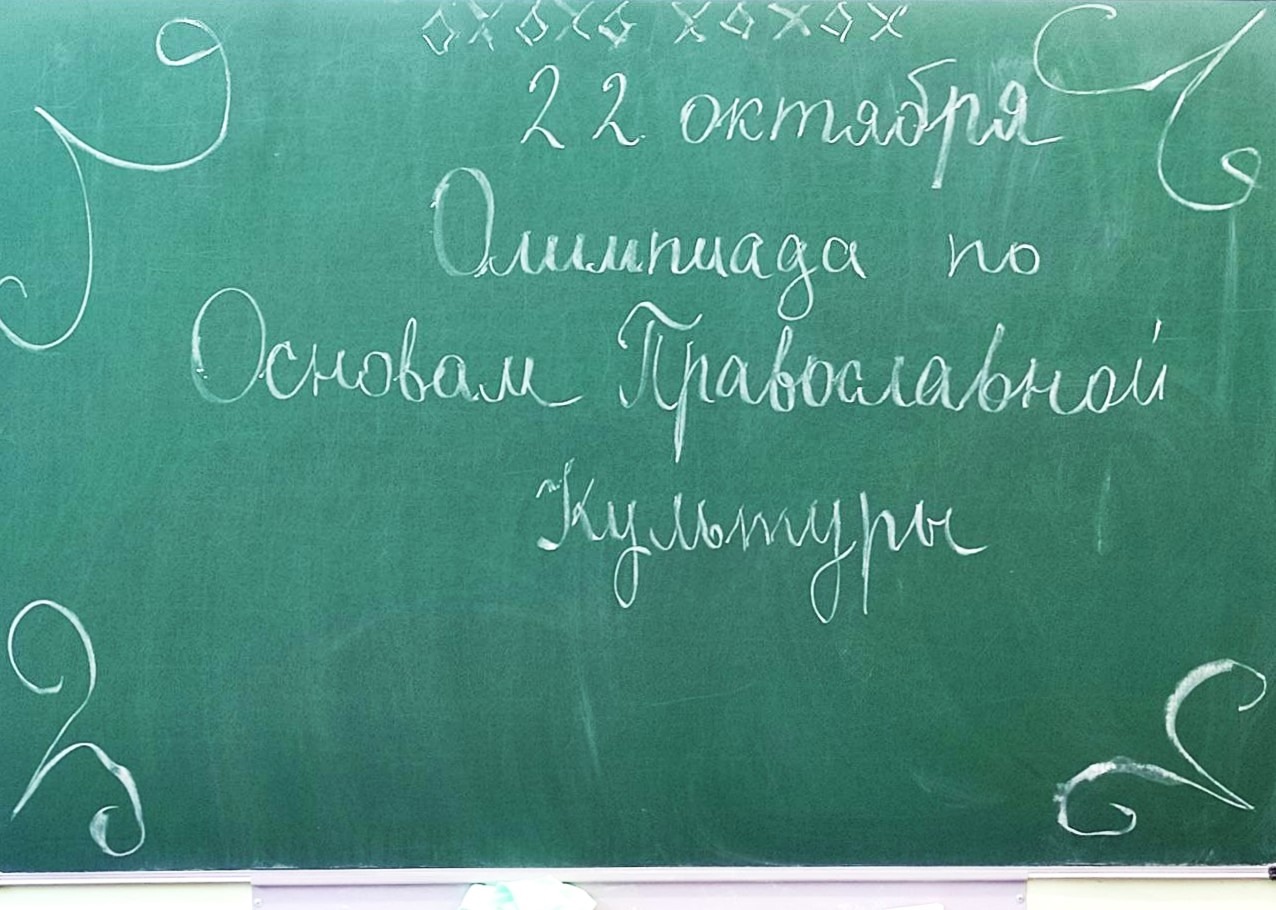 22 октября
Олимпиада по
Основам Православной
Культуры